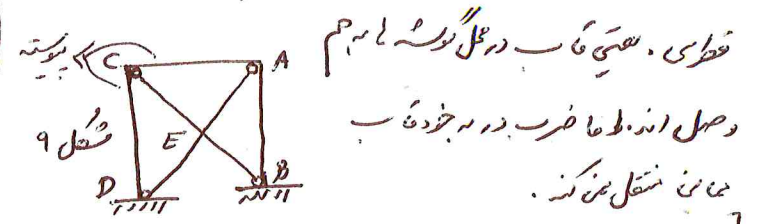 قطری . یعنی قاب در محل گوشه ها به هم
وصل اند. اما ضرب در به خود قاب
ممان منتقل نمی کند.
پیوسته
C
A
شکل ۹
E
D
B